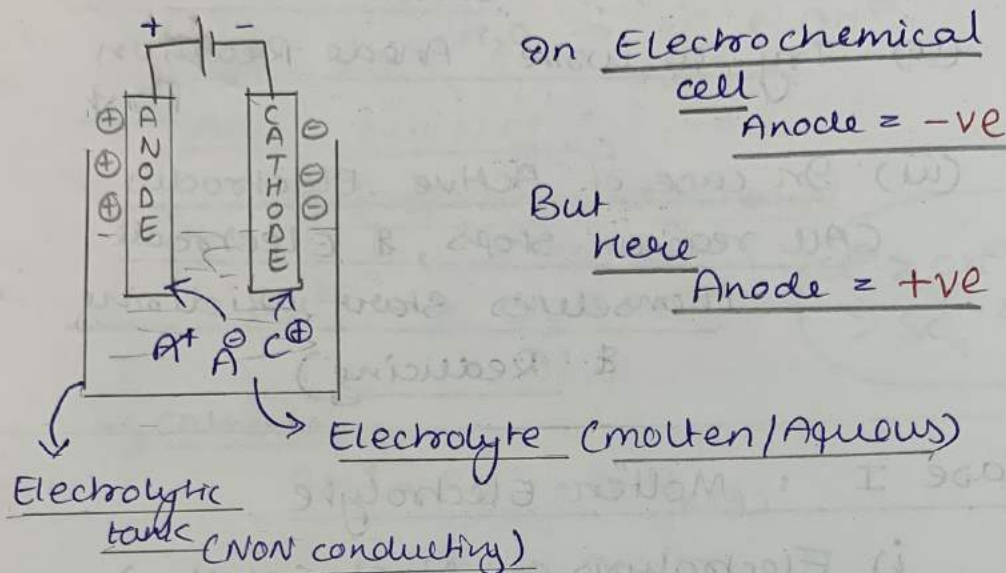 + −
ANODE
CATHODE
⊕ ⊖
⊕ ⊖
⊕ ⊖
A+ A⊖ C⊕
On Electrochemical
cell
Anode = -ve
But
Here
Anode = +ve
Electrolyte (molten/Aqueous)
Electrolytic
tank (NON conducting)